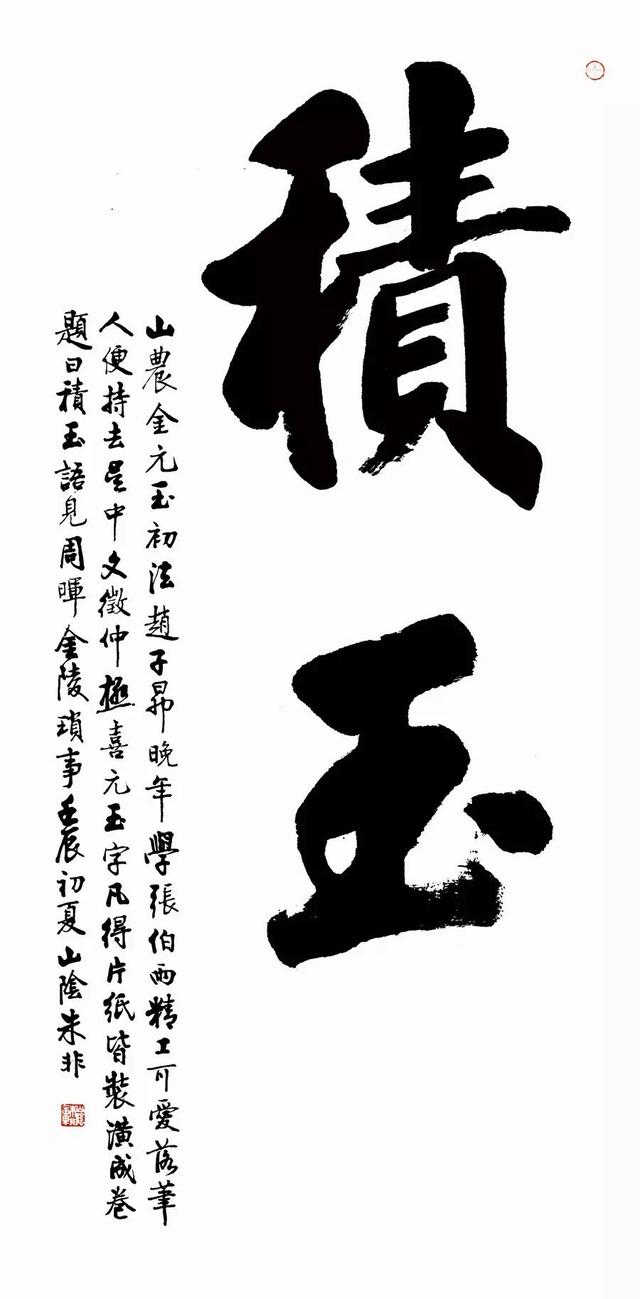 積玉
山農金元玉初法趙子昂晚年學張伯雨精工可愛落筆
人便持去吴中文徵仲極喜元玉字凡得片紙皆裝潢成卷
題曰積玉語見周暉金陵瑣事壬辰初夏山陰朱非